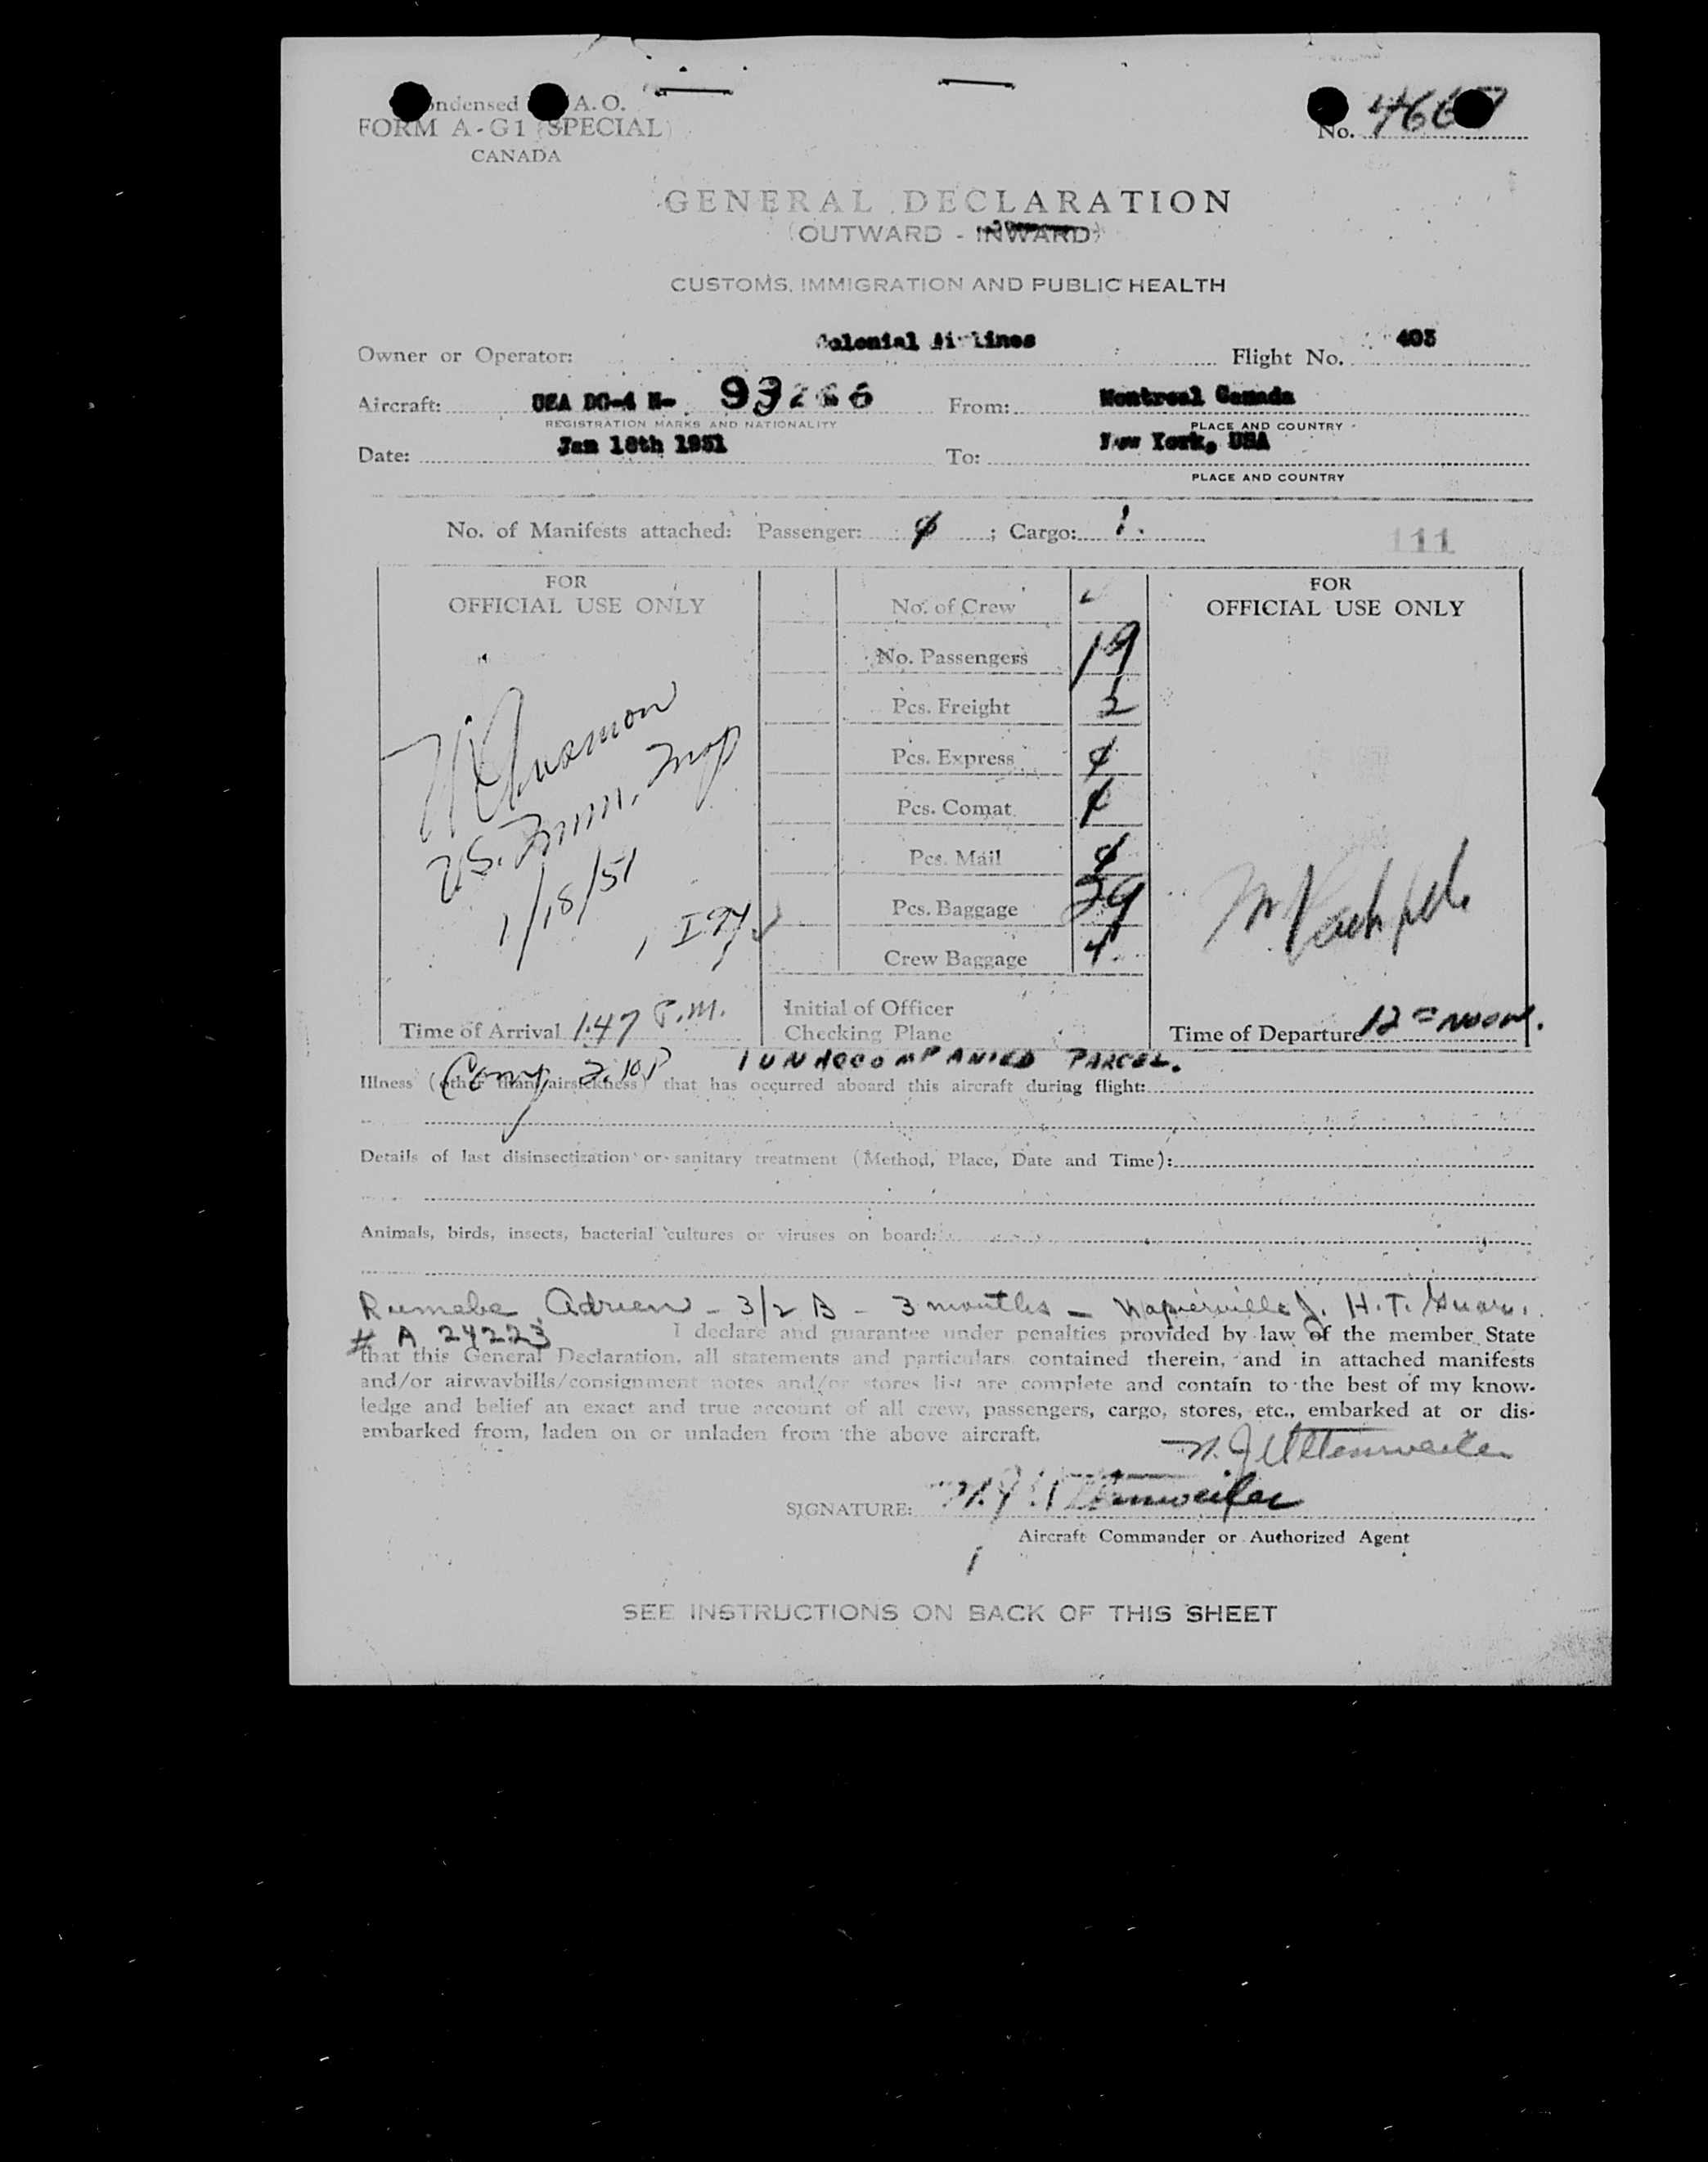 ondensed A.O.
FORM A-G1 (SPECIAL)
CANADA
No. 4667
GENERAL DECLARATION
(OUTWARD - INWARD)
CUSTOMS, IMMIGRATION AND PUBLIC HEALTH
Owner or Operator: Colonial Airlines Flight No. 403
Aircraft: USA DC-4 N- 93266 From: Montreal Canada
REGISTRATION MARKS AND NATIONALITY PLACE AND COUNTRY
Date: Jan 18th 1951 To: New York, USA
PLACE AND COUNTRY
No. of Manifests attached: Passenger: ; Cargo: 1.
111
FOR
OFFICIAL USE ONLY
U.S. Imm. Insp
1/18/51
Time of Arrival 1:47 P.M.
No. of Crew
No. Passengers 19
Pcs. Freight 2
Pcs. Express
Pcs. Comat
Pcs. Mail
Pcs. Baggage 39
Crew Baggage 4
Initial of Officer
Checking Plane
FOR
OFFICIAL USE ONLY
Time of Departure 12 = NOON.
1 UNACCOMPANIED PARCEL.
2.10P
Illness (other than airsickness) that has occurred aboard this aircraft during flight:
Details of last disinsectization or sanitary treatment (Method, Place, Date and Time):
Animals, birds, insects, bacterial cultures or viruses on board:
Adrien - 3/2 B - 3 months - Napierville J. H.T.
# A 24223 I declare and guarantee under penalties provided by law of the member State
that this General Declaration, all statements and particulars contained therein, and in attached manifests
and/or airwaybills/consignment notes and/or stores list are complete and contain to the best of my know-
ledge and belief an exact and true account of all crew, passengers, cargo, stores, etc., embarked at or dis-
embarked from, laden on or unladen from the above aircraft.
SIGNATURE:
Aircraft Commander or Authorized Agent
SEE INSTRUCTIONS ON BACK OF THIS SHEET